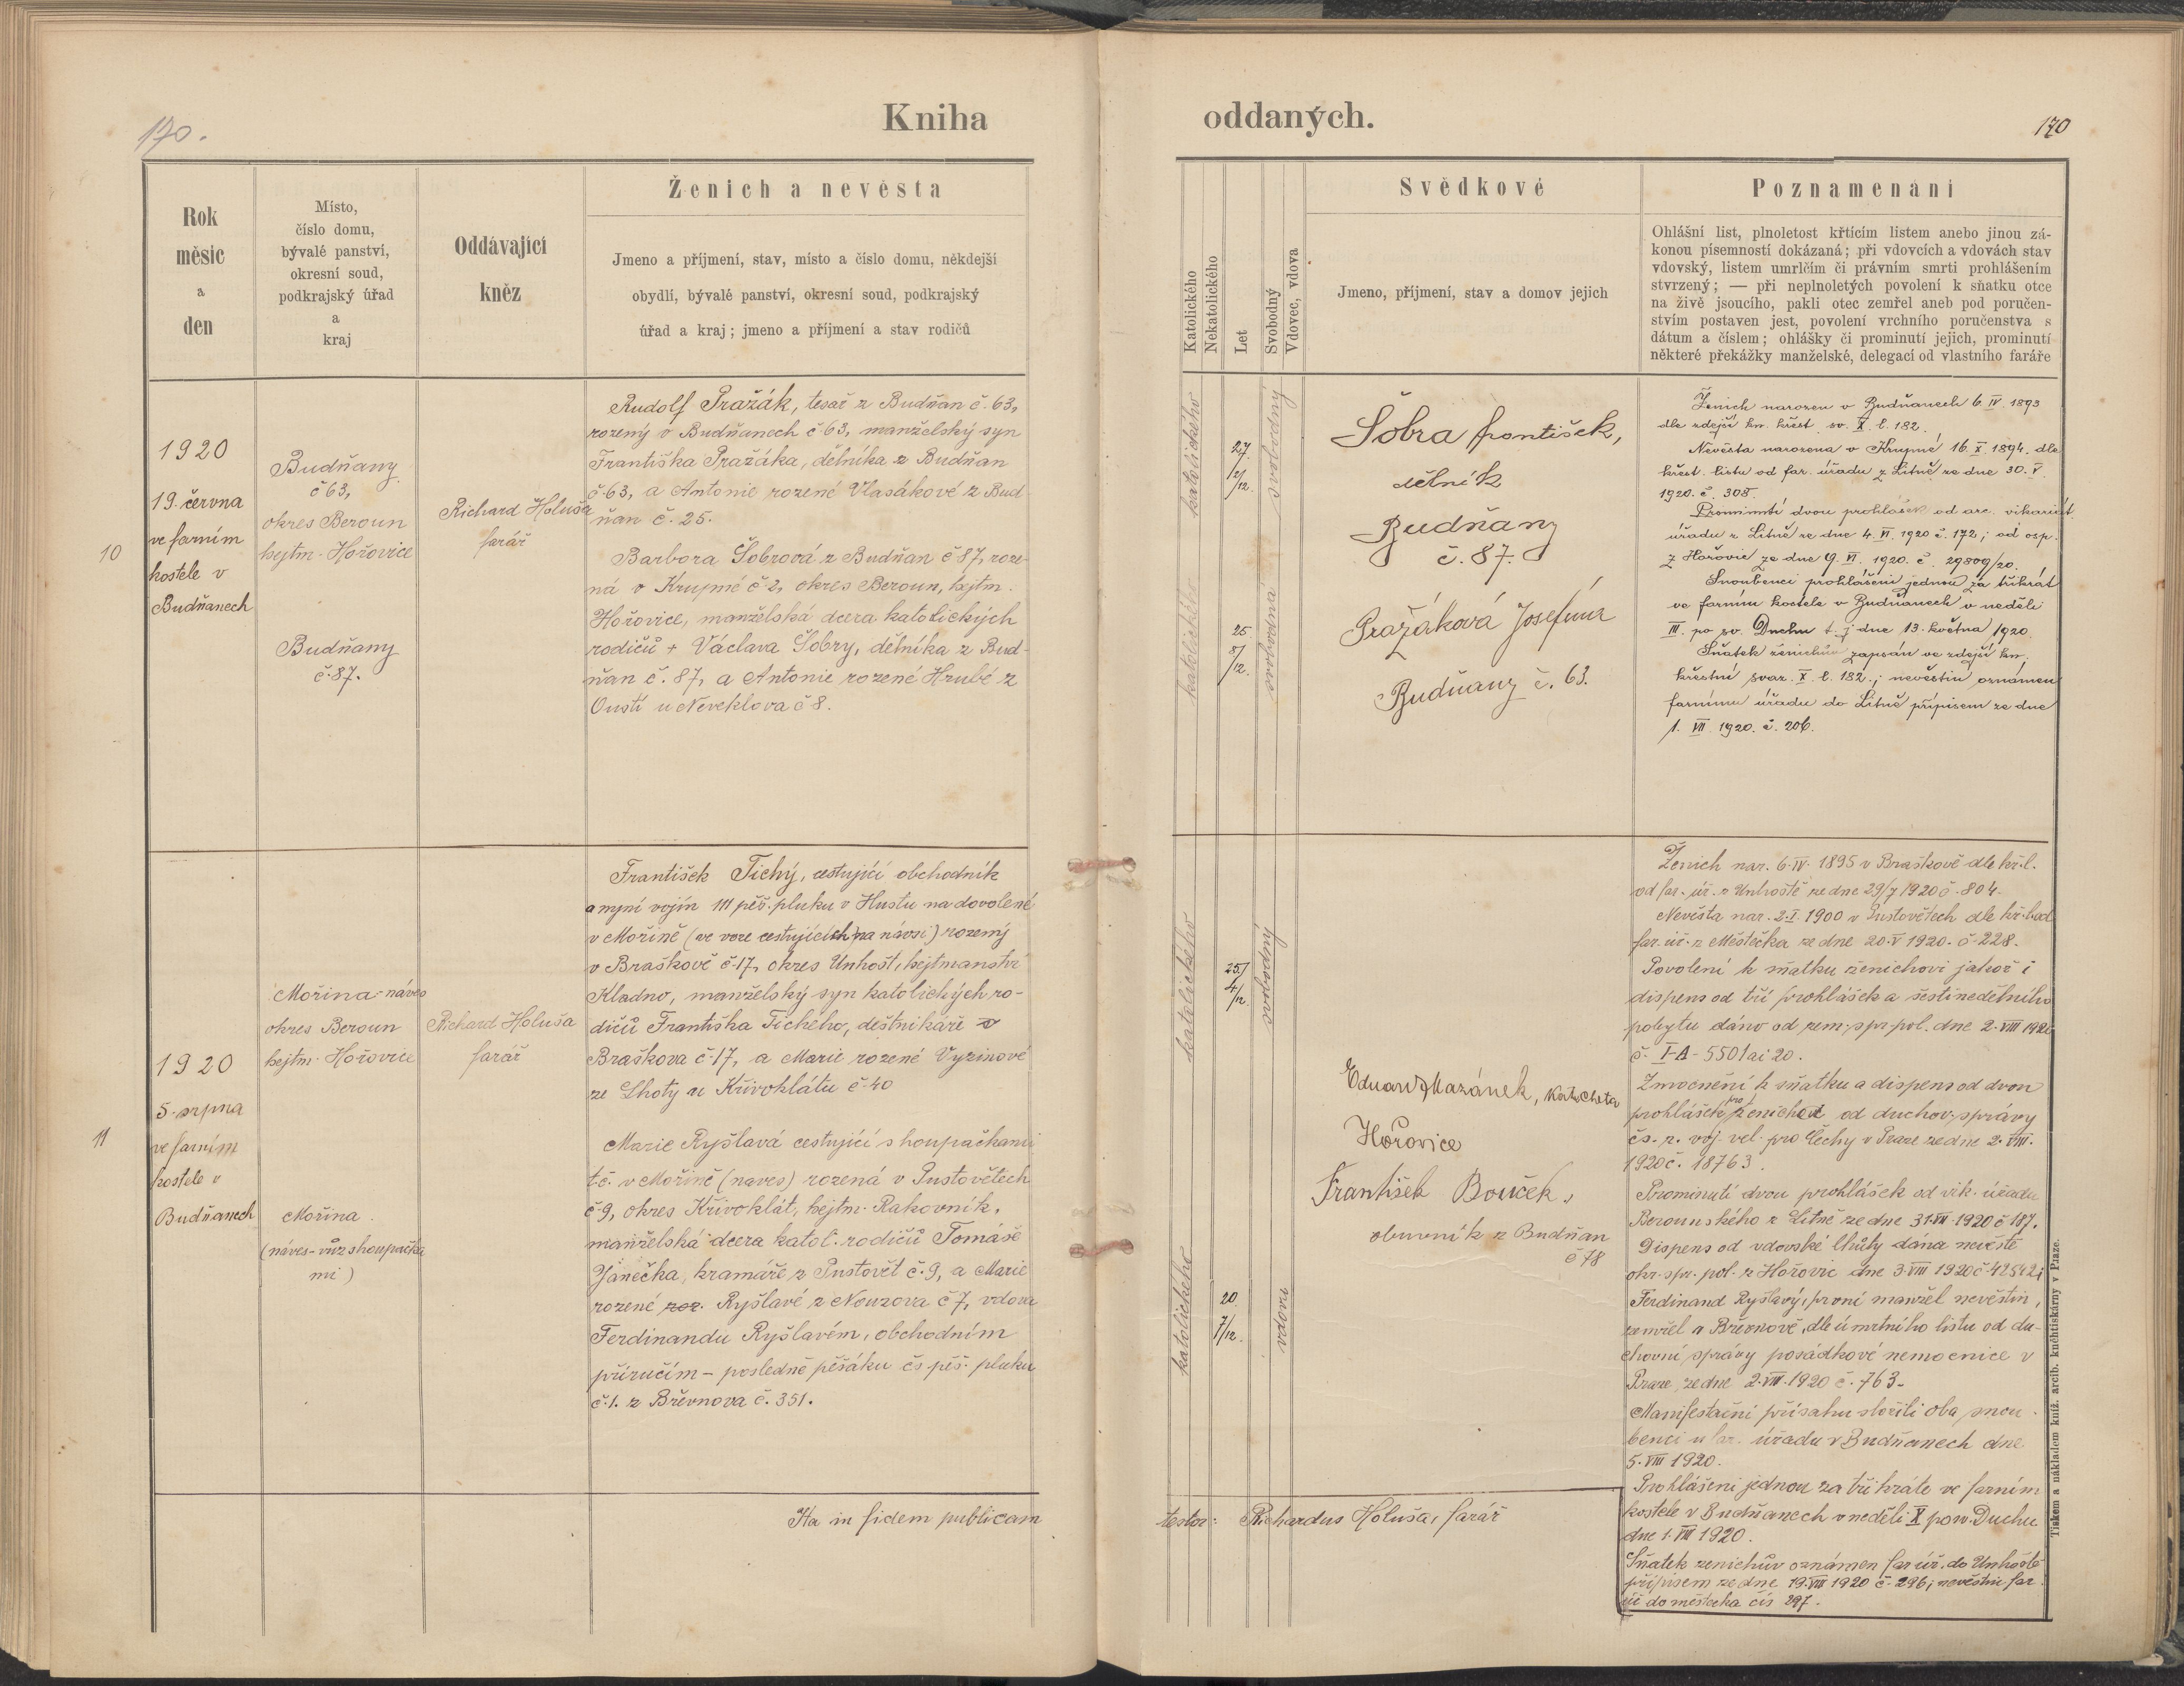 170.
Kniha
oddaných.
170
Rok
měsíc
a
den
Místo,
číslo domu,
bývalé panství,
okresní soud,
podkrajský úřad
a
kraj
Oddávající
kněz
Ženich a nevěsta
Jmeno a příjmení, stav, místo a číslo domu, někdejší
obydlí, bývalé panství, okresní soud, podkrajský
úřad a kraj; jmeno a příjmení a stav rodičů
Katolického
Nekatolického
Let
Svobodný
Vdovec, vdova
Svědkové
Jmeno, příjmení, stav a domov jejich
Poznamenání
Ohlášní list, plnoletost křtícím listem anebo jinou zá-
konou písemností dokázaná; při vdovcích a vdovách stav
vdovský, listem umrlčím či právním smrti prohlášením
stvrzený; — při neplnoletých povolení k sňatku otce
na živě jsoucího, pakli otec zemřel aneb pod poručen-
stvím postaven jest, povolení vrchního poručenstva s
dátum a číslem; ohlášky či prominutí jejich, prominutí
některé překážky manželské, delegací od vlastního faráře
10
1920
19. června
ve farním
kostele v
Budňanech
Budňany
č 63,
okres Beroun
hejtm. Hořovice
Budňany
č. 87.
Richard Holuša
farář
Rudolf Pražák, tesař z Budňan č. 63,
rozený v Budňanech č 63, manželský syn
Františka Pražáka, dělníka z Budňan
č. 63, a Antonie rozené Vlasákové z Bud-
ňan č. 25.
Barbora Šobrová z Budňan č 87, roze-
ná v Krupné č 2, okres Beroun, hejtm.
Hořovice, manželská dcera katolických
rodičů + Václava Šobry, dělníka z Bud-
ňan č. 87, a Antonie rozené Hrubé z
Oustí u Neveklova č 8.
katolického
27.
2/12.
svobodný
katolického
25.
8/12.
svobodná
Šobra František,
dělník
Budňany
č. 87.
Pražáková Josefina
Budňany č. 63.
Ženich narozen v Budňanech 6. IV. 1893
dle zdejší kn. křest. sv. X. l. 182.
Nevěsta narozena v Krupné 16. X. 1894. dle
křest. listu od far. úřadu z Litně ze dne 30. V.
1920. č. 308.
Prominutí dvou prohlášek od arc. vikariát.
úřadu z Litně ze dne 4. VI. 1920 č. 172; od osp.
z Hořovic ze dne 9. VI. 1920. č. 29809/20.
Snoubenci prohlášeni jednou za třikrát
ve farním kostele v Budňanech v neděli
III. po sv. Duchu t. j dne 13. května 1920.
Sňatek ženichův zapsán ve zdejší kn.
křestní svaz. X. l. 182.; nevěstin oznámen
farnímu úřadu do Litně přípisem ze dne
1. VII. 1920. č. 206.
11
1920
5. srpna
ve farním
kostele v
Budňanech
Mořina - náves
okres Beroun
hejtm. Hořovice
Mořina
(náves - vůz s houpačka
mi)
Richard Holuša
farář
František Tichý, cestující obchodník
a nyní vojín III pěš. pluku v Hustu na dovolené
v Mořině (ve voze cestujících na návsi) rozený
v Braškově č. 17, okres Unhošt, hejtmanství
Kladno, manželský syn katolických ro-
dičů Františka Tichého, deštnikáře z
Braškova č. 17, a Marie rozené Vyzinové
ze Lhoty u Křivoklátu č. 40
Marie Ryšlavá cestující s houpačkami
t.č. v Mořině (naves) rozená v Pustovětech
č 9, okres Křivoklát, hejtm. Rakovník,
manželská dcera katol. rodičů Tomáše
Janečka, kramáře z Pustovět č. 9, a Marie
rozené roz. Ryšlavé z Nouzova č 7, vdova
Ferdinandu Ryšlavém, obchodním
příručím - posledně pěšáku čs. pěš. pluku
č. 1. z Břevnova č. 351.
katolického
25.
4/12.
svobodný
katolického
20.
7/12.
vdova
Eduard Mazánek, katecheta
Hořovice
František Bouček,
obuvník z Budňan
č 78
Ženich nar. 6. IV. 1895 v Braškově dle kř. l.
od far. úř. z Unhoště ze dne 29/7 1920 č. 804.
Nevěsta nar. 2. I. 1900 v Pustovětech dle kř. l. od
far. úř. z Městečka ze dne 20. V 1920. č. 228.
Povolení k sňatku ženichovi jakož i
dispens od tří prohlášek a šestinedělního
pobytu dáno od zem. spr. pol. dne 2. VIII 1920
č. I-A - 5501 ai 20.
Zmocnění k sňatku a dispens od dvou
prohlášek pro ženicha od duchov. správy
čs. z. voj. vel. pro Čechy v Praze ze dne 2. VIII.
1920 č. 18763.
Prominutí dvou prohlášek od vik. úřadu
Berounského z Litně ze dne 31. VII. 1920 č 187.
Dispens od vdovské lhůty dána nevěstě
okr. spr. pol. z Hořovic dne 3. VIII 1920 č. 42542;
Ferdinand Ryšlavý, první manžel nevěstin,
zemřel v Břevnově, dle úmrtního listu od du-
chovní správy posádkové nemocnice v
Praze, ze dne 2. VIII. 1920 č. 763.
Manifestační přísahu složili oba snou-
benci u far. úřadu v Budňanech dne
5. VIII 1920.
Prohlášeni jednou za tři kráte ve farním
kostele v Budňanech v neděli X po sv. Duchu
dne 1. VIII 1920.
Sňatek ženichův oznámen far. úř. do Unhoště
přípisem ze dne 19. VIII 1920 č. 296; nevěstin far.
úř do městečka čís 297.
Ita in fidem publicam
testor: Richardus Holuša, farář
Tiskem a nákladem kníž. arcib. knihtiskárny v Praze.